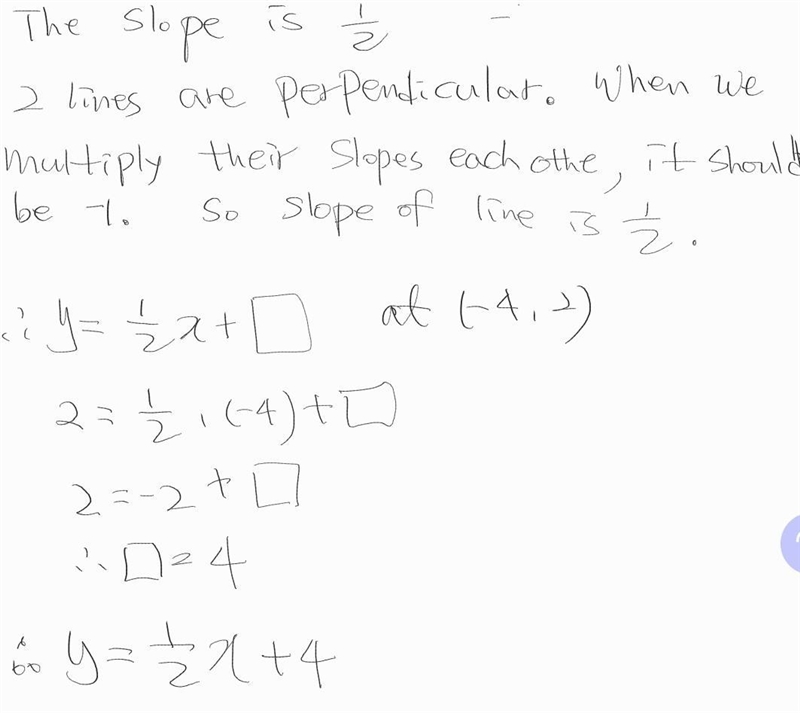 The slope is 1/2 -
2 lines are perpendicular. When we
multiply their slopes each othe, it should
be -1. So slope of line is 1/2.
∴ y = 1/2 x + □ at (-4, 2)
2 = 1/2 · (-4) + □
2 = -2 + □
∴ □ = 4
∴ y = 1/2 x + 4